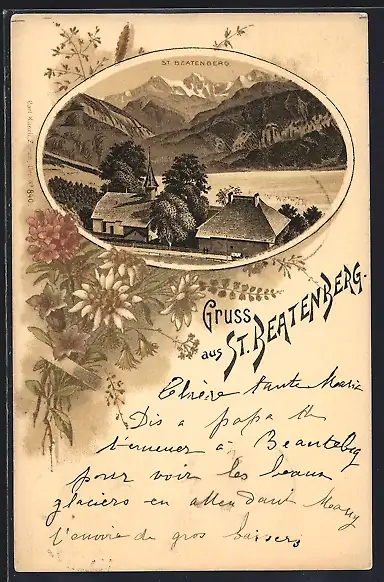 ST. BEATENBERG
Gruss
aus ST. BEATENBERG.
Chère tante Maria
Dis a papa de
t'emener à Beatebeg
pour voir les beaux
glaciers en attendant Many
t'envoie de gros baisers